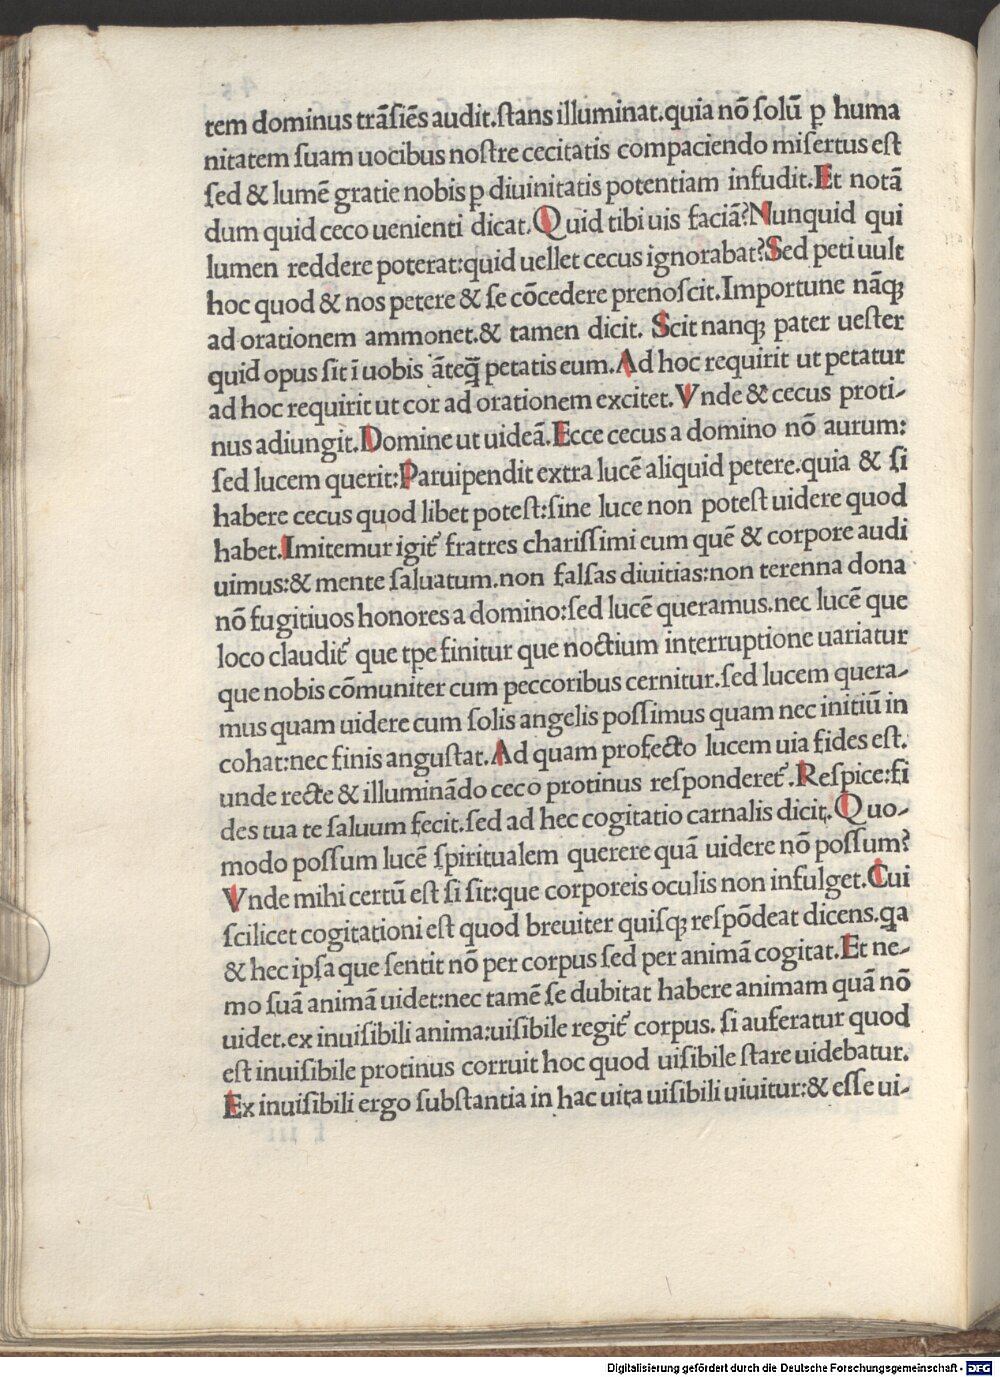 tem dominus trāsiēs audit.stans illuminat.quia nō solū ꝑ huma
nitatem suam uocibus nostre cecitatis compaciendo misertus est
sed & lumē gratie nobis ꝑ diuinitatis potentiam infudit.Et notā
dum quid ceco uenienti dicat.Quid tibi uis faciā?Nunquid qui
lumen reddere poterat:quid uellet cecus ignorabat?Sed peti uult
hoc quod & nos petere & se cōcedere prenoscit.Importune nāqꝫ
ad orationem ammonet.& tamen dicit. Scit nanqꝫ pater uester
quid opus sit ī uobis āteqꝗ̄ petatis eum.Ad hoc requirit ut petatur
ad hoc requirit ut cor ad orationem excitet.Vnde & cecus proti-
nus adiungit.Domine ut uideā.Ecce cecus a domino nō aurum:
sed lucem querit:Paruipendit extra lucē aliquid petere.quia & si
habere cecus quod libet potest:sine luce non potest uidere quod
habet.Imitemur igit᷑ fratres charissimi eum quē & corpore audi
uimus:& mente saluatum.non falsas diuitias:non terenna dona
nō fugitiuos honores a domino:sed lucē queramus.nec lucē que
loco claudit᷑ que tꝑe finitur que noctium interruptione uariatur
que nobis cōmuniter cum peccoribus cernitur.sed lucem quera-
mus quam uidere cum solis angelis possimus quam nec initiū in
cohat:nec finis angustat.Ad quam profecto lucem uia fides est.
unde recte & illuminādo ceco protinus responderet᷑.Respice:fi
des tua te saluum fecit.sed ad hec cogitatio carnalis dicit.Quo-
modo possum lucē spiritualem querere quā uidere nō possum?
Vnde mihi certū est si sit:que corporeis oculis non infulget.Cui
scilicet cogitationi est quod breuiter quisqꝫ respōdeat dicens.qa
& hec ipsa que sentit nō per corpus sed per animā cogitat.Et ne-
mo suā animā uidet:nec tamē se dubitat habere animam quā nō
uidet.ex inuisibili anima:uisibile regit᷑ corpus. si auferatur quod
est inuisibile protinus corruit hoc quod uisibile stare uidebatur.
Ex inuisibili ergo substantia in hac uita uisibili uiuitur:& esse ui-
Digitalisierung gefördert durch die Deutsche Forschungsgemeinschaft - DFG